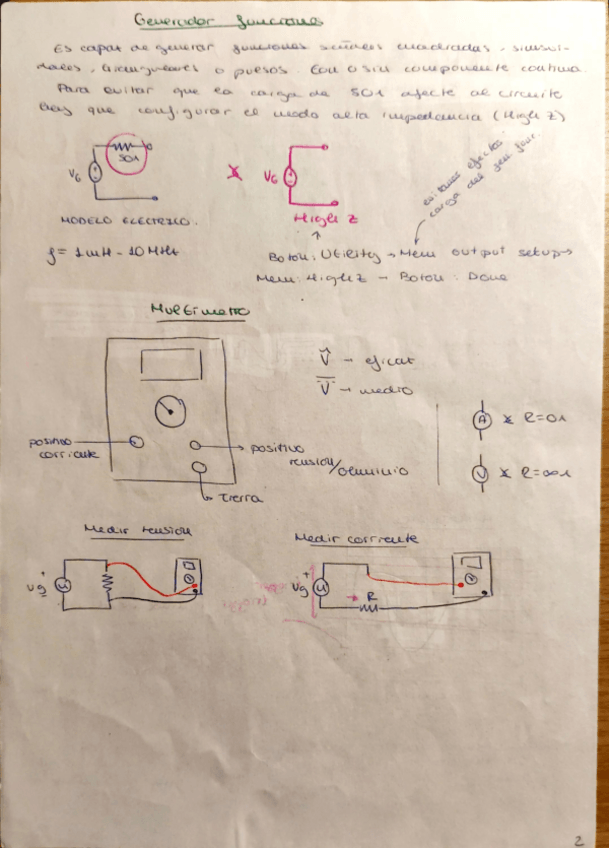 Generador funciones
Es capaz de generar funciones señales cuadradas, sinusoi-
dales, triangulares o pulsos. Con o sin componente continua.
Para evitar que la carga de 50Ω afecte al circuito
hay que configurar el modo alta impedancia (High Z)
50Ω
VG
MODELO ELECTRICO.
f = 1mH - 10 MHz
VG
High Z
evitamos efectos
carga del gen func.
Boton: Utility → Menu output setup →
Menu: High Z → Boton: Done
Multimetro
V → eficaz
V → medio
positivo
corriente
positivo
tension/ohmnio
Tierra
A R=0Ω
V R=∞Ω
Medir tension
Vg
+
Medir corriente
Vg
+
R
2